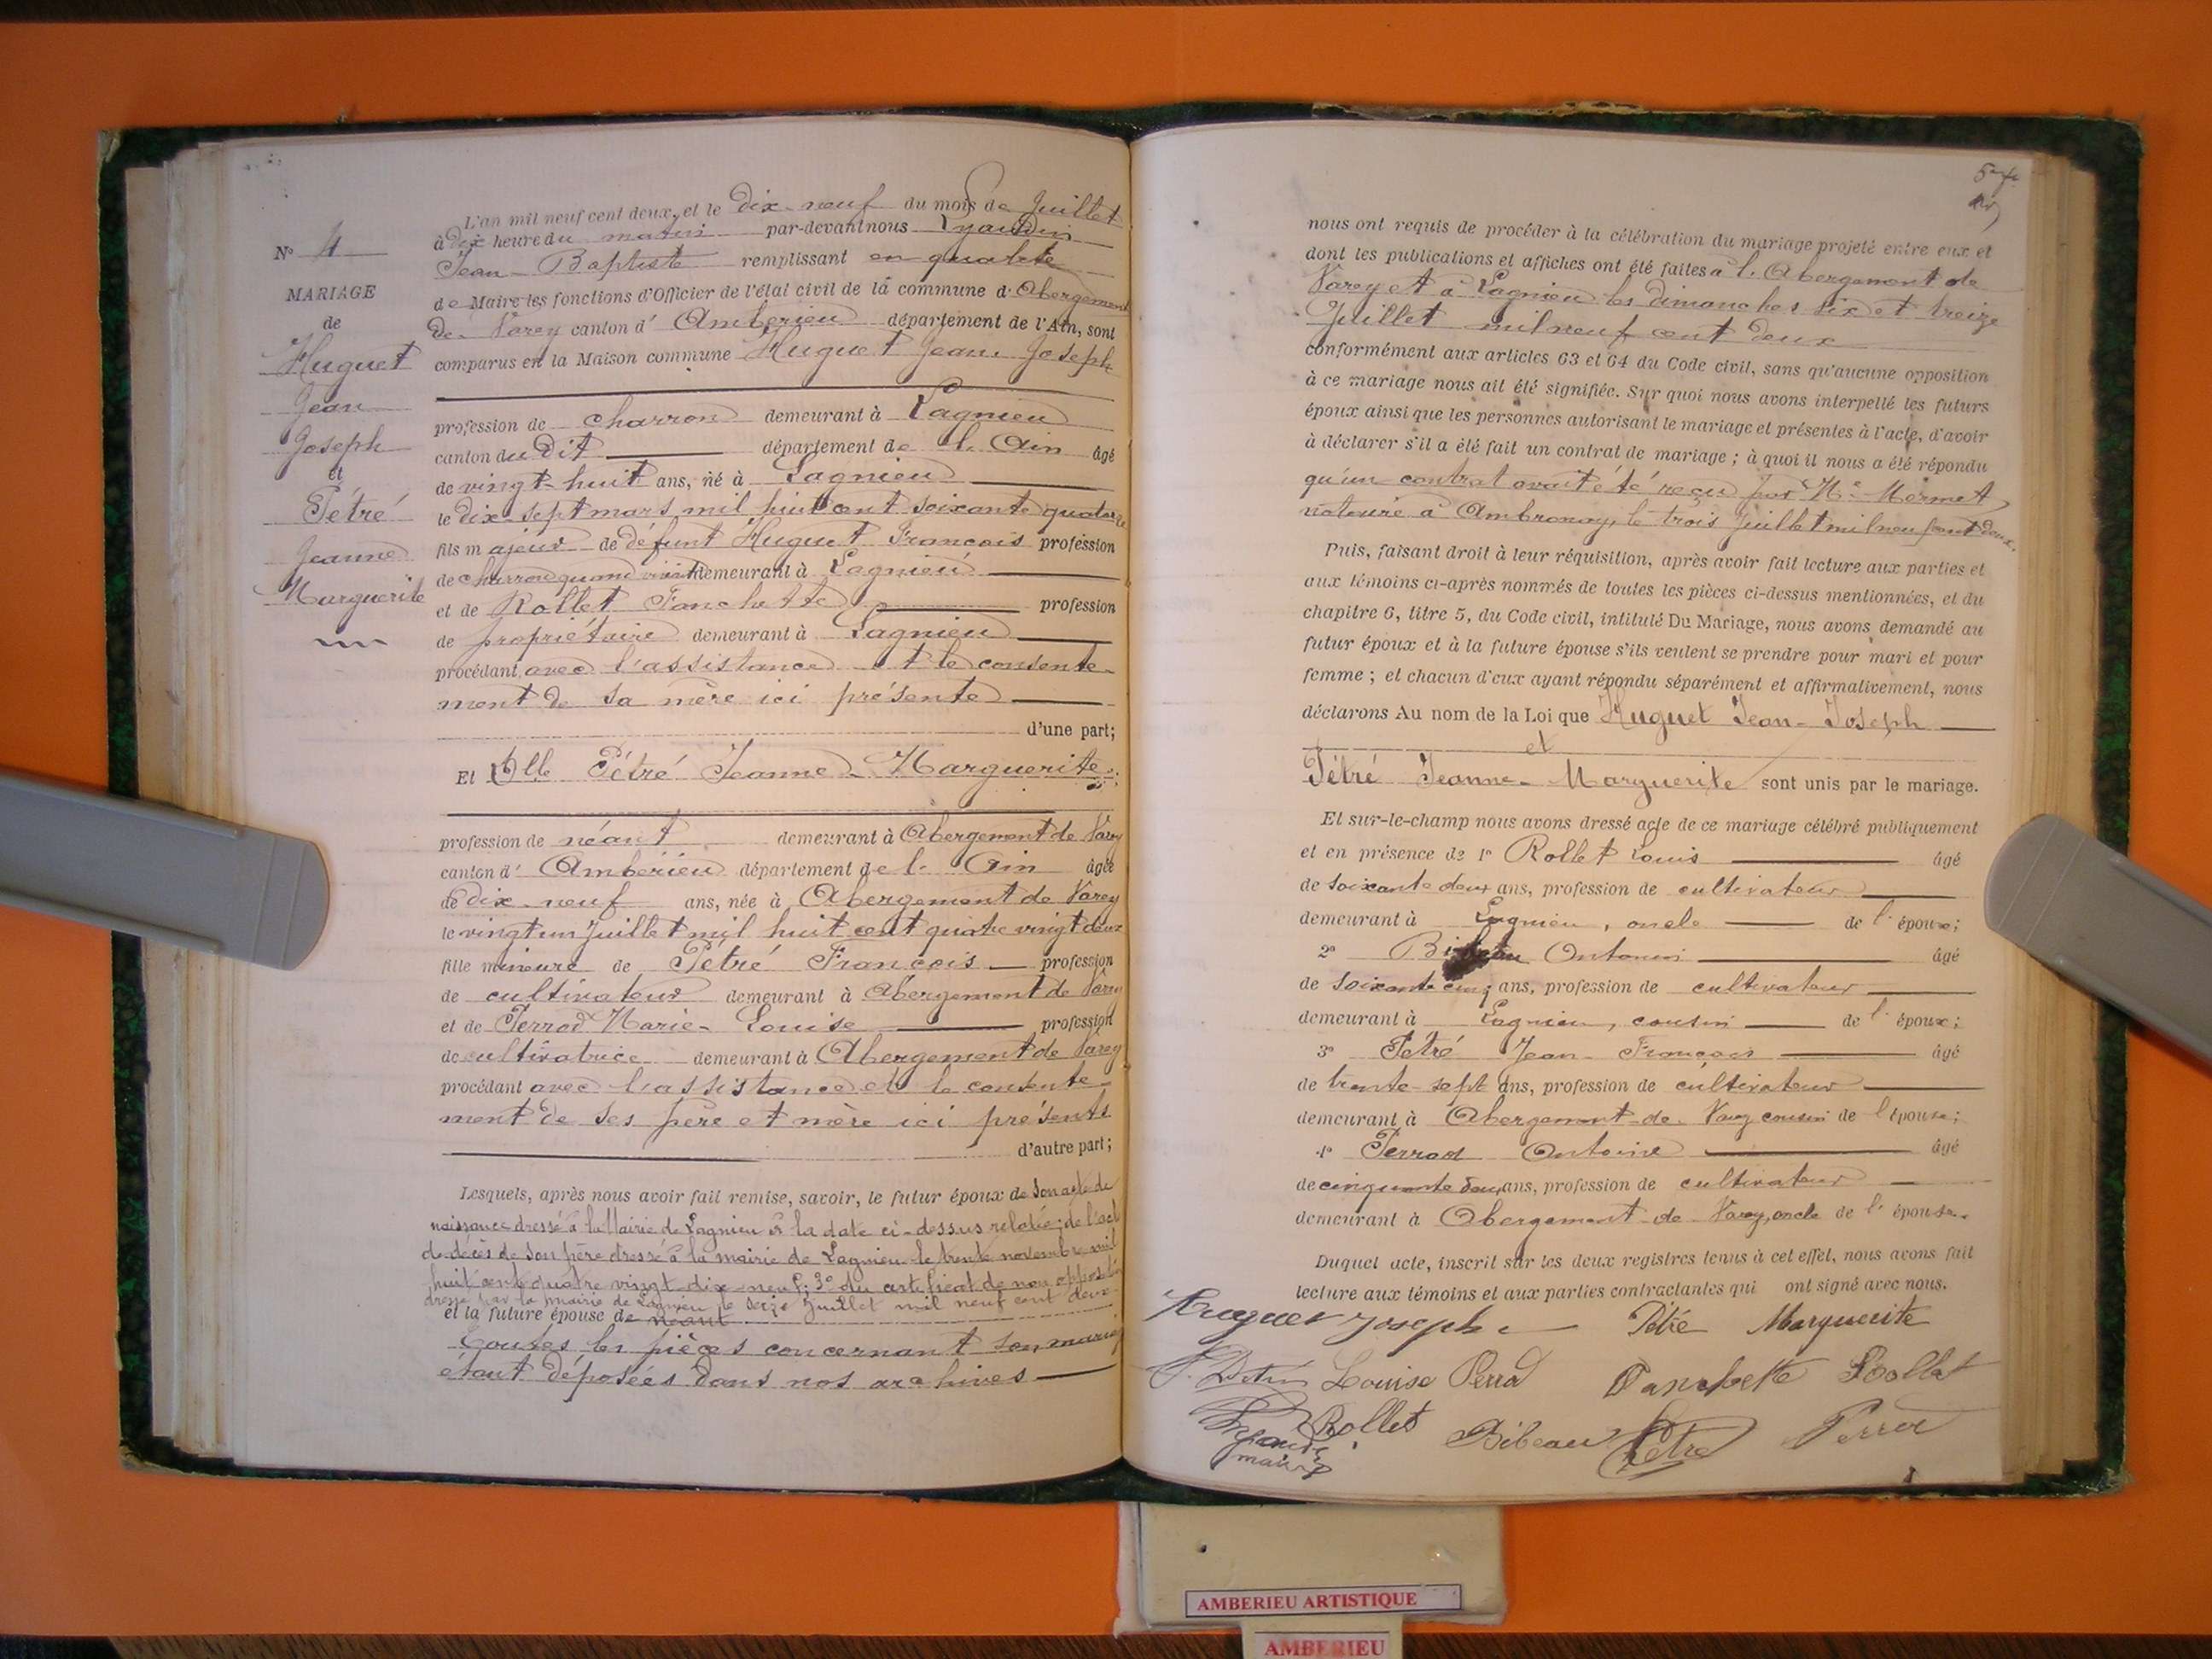 N° 4
MARIAGE
de
Huguet
Jean
Joseph
et
Pétré
Jeanne
Marguerite
L'an mil neuf cent deux, et le dix-neuf du mois de Juillet
à dix heure du matin par-devant nous Lyaudin
Jean-Baptiste remplissant en qualité
de Maire les fonctions d'Officier de l'état civil de la commune d'Abergement
de Varey canton d'Amberieu département de l'Ain, sont
comparus en la Maison commune Huguet Jean Joseph
profession de charron demeurant à Lagnieu
canton du dit département de l'Ain âgé
de vingt-huit ans, né à Lagnieu
le dix-sept mars mil huit cent soixante quatorze
fils majeur de défunt Huguet François profession
de charron quand vivait demeurant à Lagnieu
et de Rollet Fanchette profession
de propriétaire demeurant à Lagnieu
procédant avec l'assistance et le consente-
ment de sa mère ici présente
d'une part;
Et Dlle Pétré Jeanne-Marguerite
profession de néant demeurant à Abergement de Varey
canton d'Ambérieu département de l'Ain âgée
de dix-neuf ans, née à Abergement de Varey
le vingt un Juillet mil huit cent quatre vingt deux
fille mineure de Pétré François profession
de cultivateur demeurant à Abergement de Varey
et de Perrod Marie-Louise profession
de cultivatrice demeurant à Abergement de Varey
procédant avec l'assistance et le consente-
ment de ses père et mère ici présents
d'autre part;
Lesquels, après nous avoir fait remise, savoir, le futur époux de son acte de
naissance dressé à la Mairie de Lagnieu à la date ci-dessus relatée; de l'acte
de décès de son père dressé à la mairie de Lagnieu le trente novembre mil
huit cent quatre vingt-dix-neuf; 3° du certificat de non opposition
dressé par la mairie de Lagnieu le seize Juillet mil neuf cent deux
et la future épouse de néant
Toutes les pièces concernant son mariage
étant déposées dans nos archives
nous ont requis de procéder à la célébration du mariage projeté entre eux et
dont les publications et affiches ont été faites à l'Abergement de
Varey et à Lagnieu les dimanches six et treize
Juillet mil neuf cent deux
conformément aux articles 63 et 64 du Code civil, sans qu'aucune opposition
à ce mariage nous ait été signifiée. Sur quoi nous avons interpellé les futurs
époux ainsi que les personnes autorisant le mariage et présentes à l'acte, d'avoir
à déclarer s'il a été fait un contrat de mariage; à quoi il nous a été répondu
qu'un contrat avait été reçu par Me Mermet
notaire à Ambronay, le trois Juillet mil neuf cent deux.
Puis, faisant droit à leur réquisition, après avoir fait lecture aux parties et
aux témoins ci-après nommés de toutes les pièces ci-dessus mentionnées, et du
chapitre 6, titre 5, du Code civil, intitulé Du Mariage, nous avons demandé au
futur époux et à la future épouse s'ils veulent se prendre pour mari et pour
femme; et chacun d'eux ayant répondu séparément et affirmativement, nous
déclarons Au nom de la Loi que Huguet Jean-Joseph
et
Pétré Jeanne-Marguerite sont unis par le mariage.
Et sur-le-champ nous avons dressé acte de ce mariage célébré publiquement
et en présence de 1° Rollet Louis âgé
de soixante deux ans, profession de cultivateur
demeurant à Lagnieu, oncle de l'époux;
2° Bibeau Antonin âgé
de soixante cinq ans, profession de cultivateur
demeurant à Lagnieu, cousin de l'époux;
3° Pétré Jean-François âgé
de trente-sept ans, profession de cultivateur
demeurant à Abergement-de-Varey cousin de l'épouse;
4° Perrod Antoine âgé
de cinquante deux ans, profession de cultivateur
demeurant à Abergement-de-Varey, oncle de l'épouse.
Duquel acte, inscrit sur les deux registres tenus à cet effet, nous avons fait
lecture aux témoins et aux parties contractantes qui ont signé avec nous.
Huguet Joseph Pétré Marguerite
Louise Perrod Fanchette Rollet
Rollet Bibeau Pétré Perrod
maire
AMBERIEU ARTISTIQUE
AMBERIEU